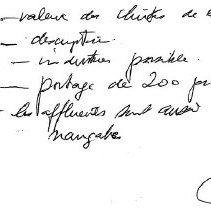 - valeur des chutes de
- description
- industries possible.
- portage de 200
- les affluents sont aussi
navigables